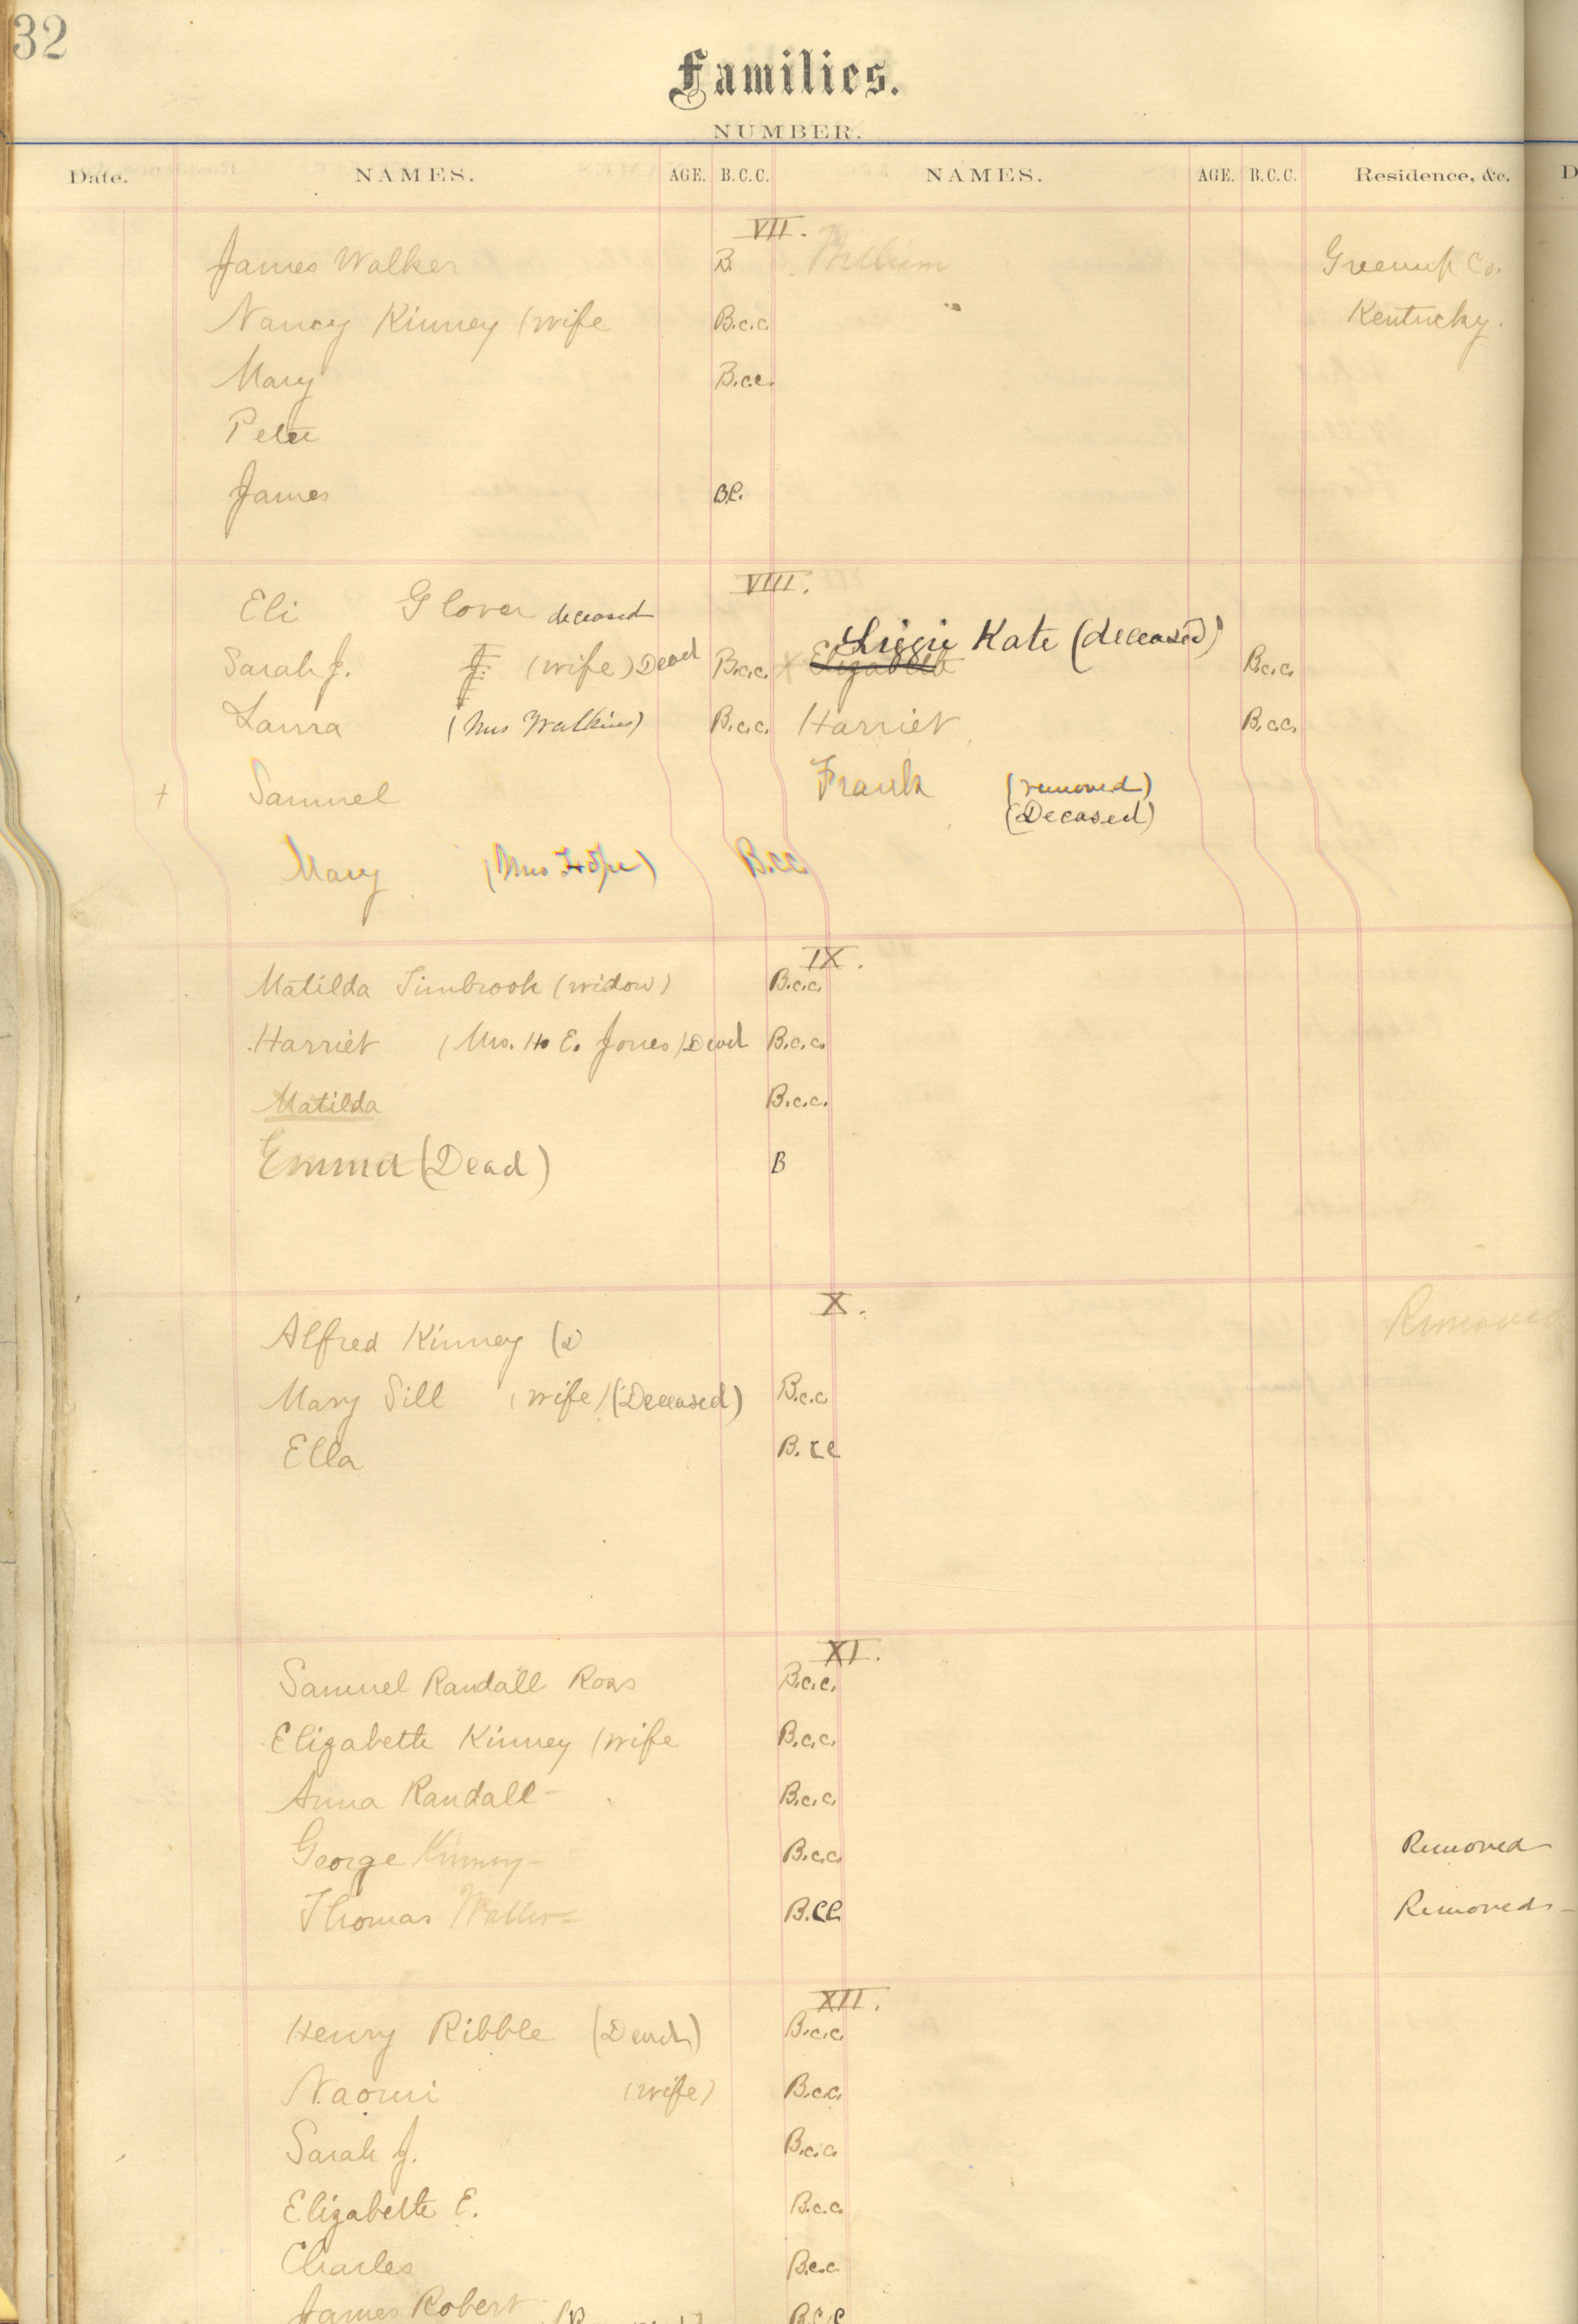 32
Families.
NUMBER.
Date. NAMES. AGE. B.C.C. NAMES. AGE. B.C.C. Residence, &c. D
VII.
James Walker B. William Greenup Co.
Nancy Kinney (wife B.c.c. Kentucky.
Mary B.c.c.
Peter
James B.C.
VIII.
Eli Glover deceased
Lizzie Kate (deceased)
Sarah J. J. (wife) Dead B.c.c. X Elizabeth B.c.c.
Laura (Mrs Watkins) B.c.c. Harriet B.c.c.
+ Samuel Frank (removed)
(Decased)
Mary (Mrs Hope) B.cc.
IX.
Matilda Timbrook (widow) B.c.c.
Harriet (Mrs. H. E. Jones) Dead B.c.c.
Matilda B.c.c.
Emma (Dead) B
X.
Alfred Kinney (D Removed
Mary Sill (wife) (Deceased) B.c.c
Ella B.cc
XI.
Samuel Randall Ross B.c.c.
Elizabeth Kinney (wife B.c.c.
Anna Randall - B.c.c.
George Kinney - B.c.c Removed
Thomas B.CC. Removed -
XII.
Henry Ribble (Dead) B.c.c.
Naomi (wife) B.c.c.
Sarah J. B.c.c.
Elizabeth E. B.c.c.
Charles B.c.c
James Robert B.C.C